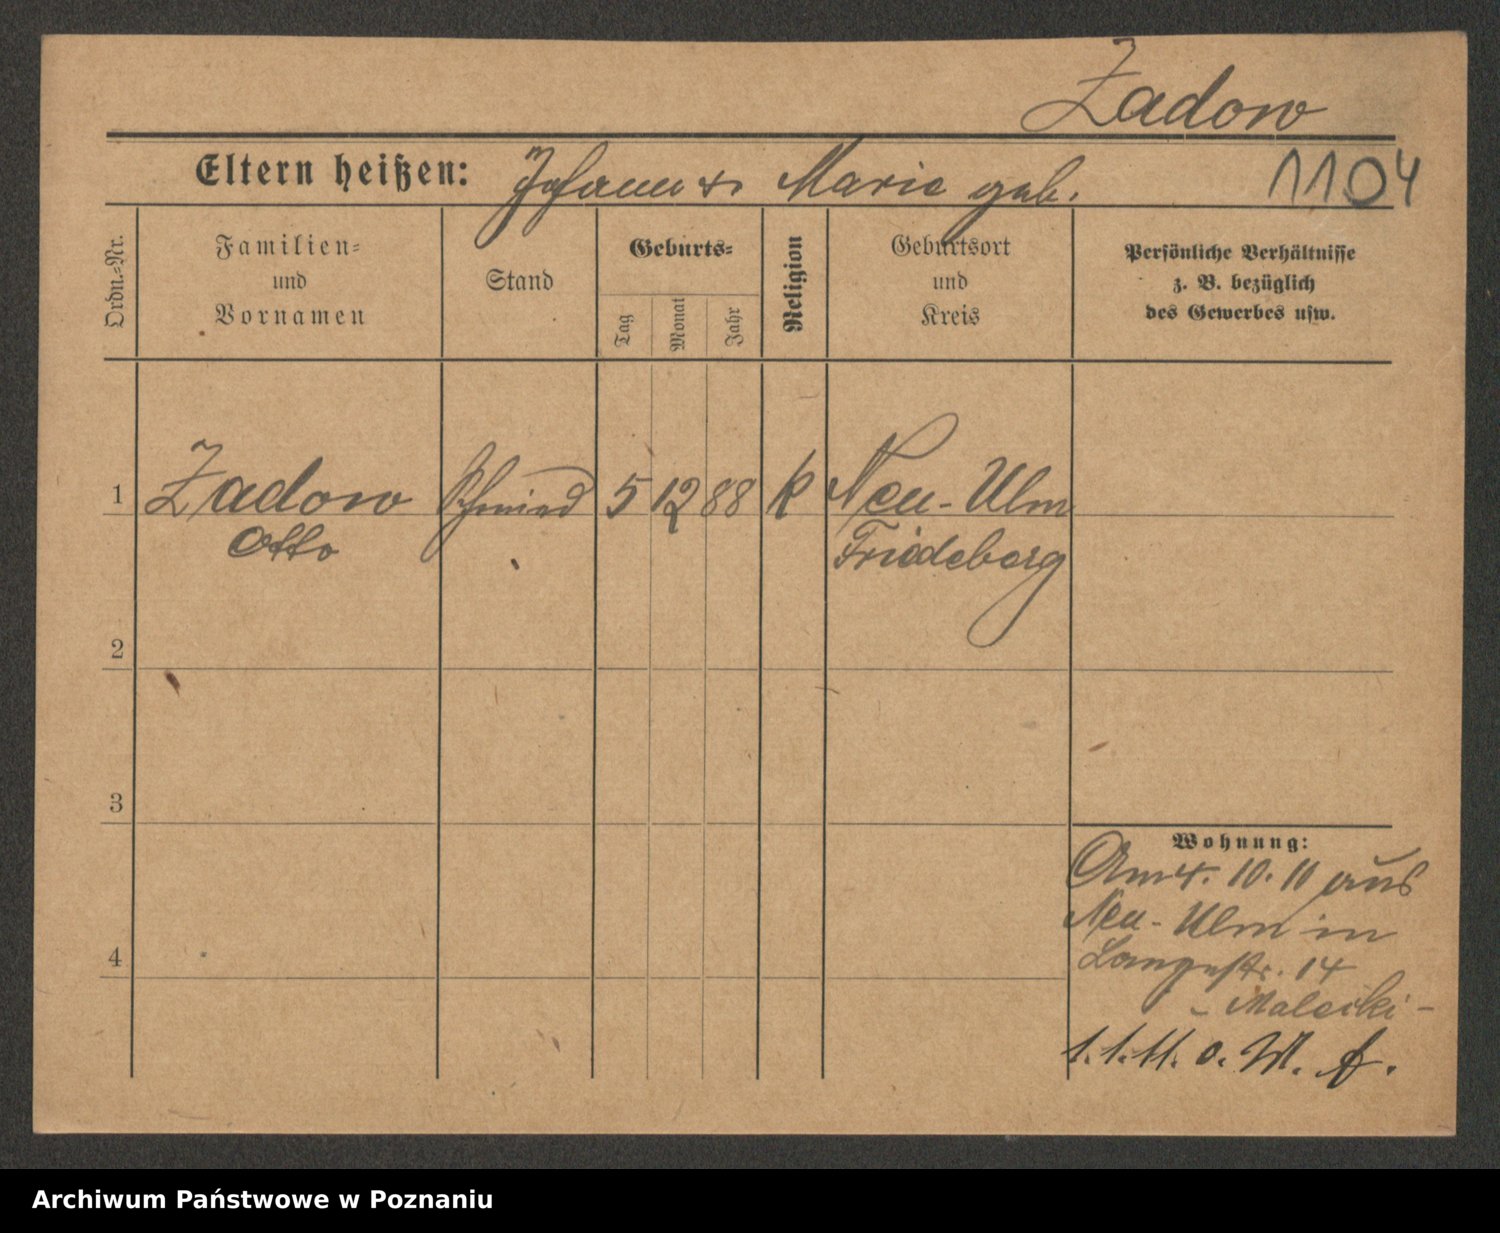 Zadow
Eltern heißen: Johann u. Marie geb.
1104
Ordn.-Nr.
Familien-
und
Vornamen
Stand
Geburts-
Tag
Monat
Jahr
Religion
Geburtsort
und
Kreis
Persönliche Verhältnisse
z. B. bezüglich
des Gewerbes usw.
1 Zadow Schmied 5 12 88 k Neu-Ulm
Otto Friedeberg
2
3
Wohnung:
10. 11 aus
Neu-Ulm in
4
Langestr. 14
- Malecki -
1.1.11. o. W. f.
Archiwum Państwowe w Poznaniu